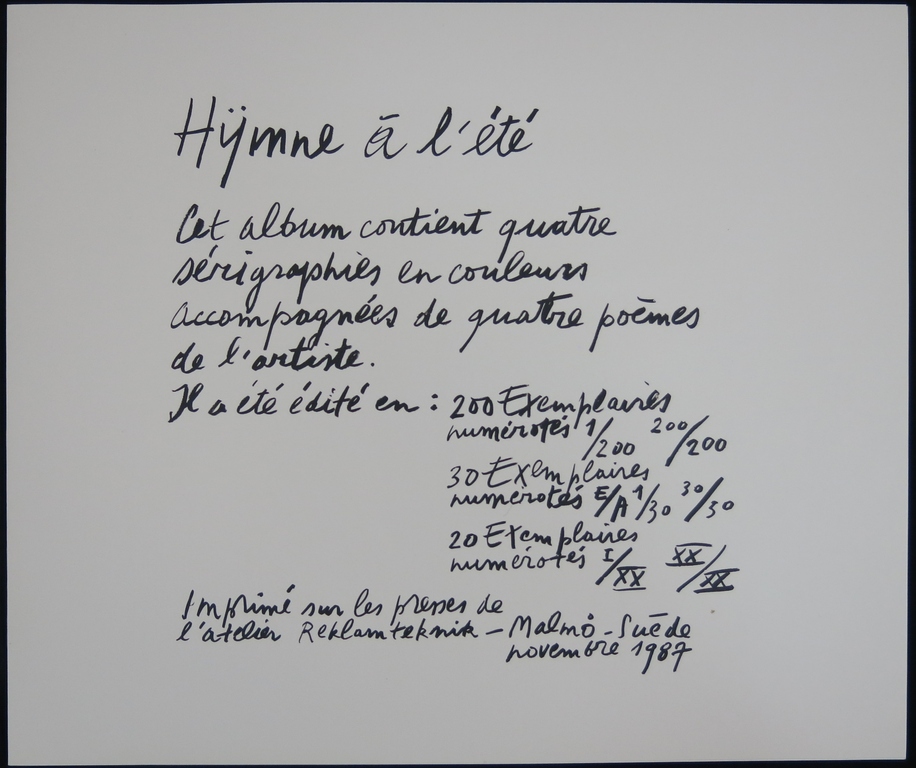 Hÿmne à l'été
Cet album contient quatre
sérigraphies en couleurs
accompagnées de quatre poèmes
de l'artiste.
Il a été édité en : 200 Exemplaires
numérotés 1/200 200/200
30 Exemplaires
numérotés E/A 1/30 30/30
20 Exemplaires
numérotés I/XX XX/XX
Imprimé sur les presses de
l'atelier Reklamteknik - Malmö - Suède
novembre 1987